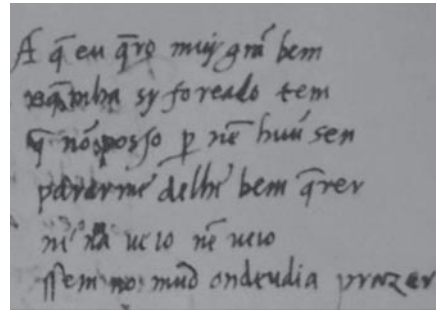 A q̃ eu q̃ro muy grã bem
 sy foreado tem
q̃ nõ posso p̱ nẽ huũ sen
parar me delhe bem q̃rer
nẽ ueio nẽ ueio
ssem no mũd ondeudia prazer